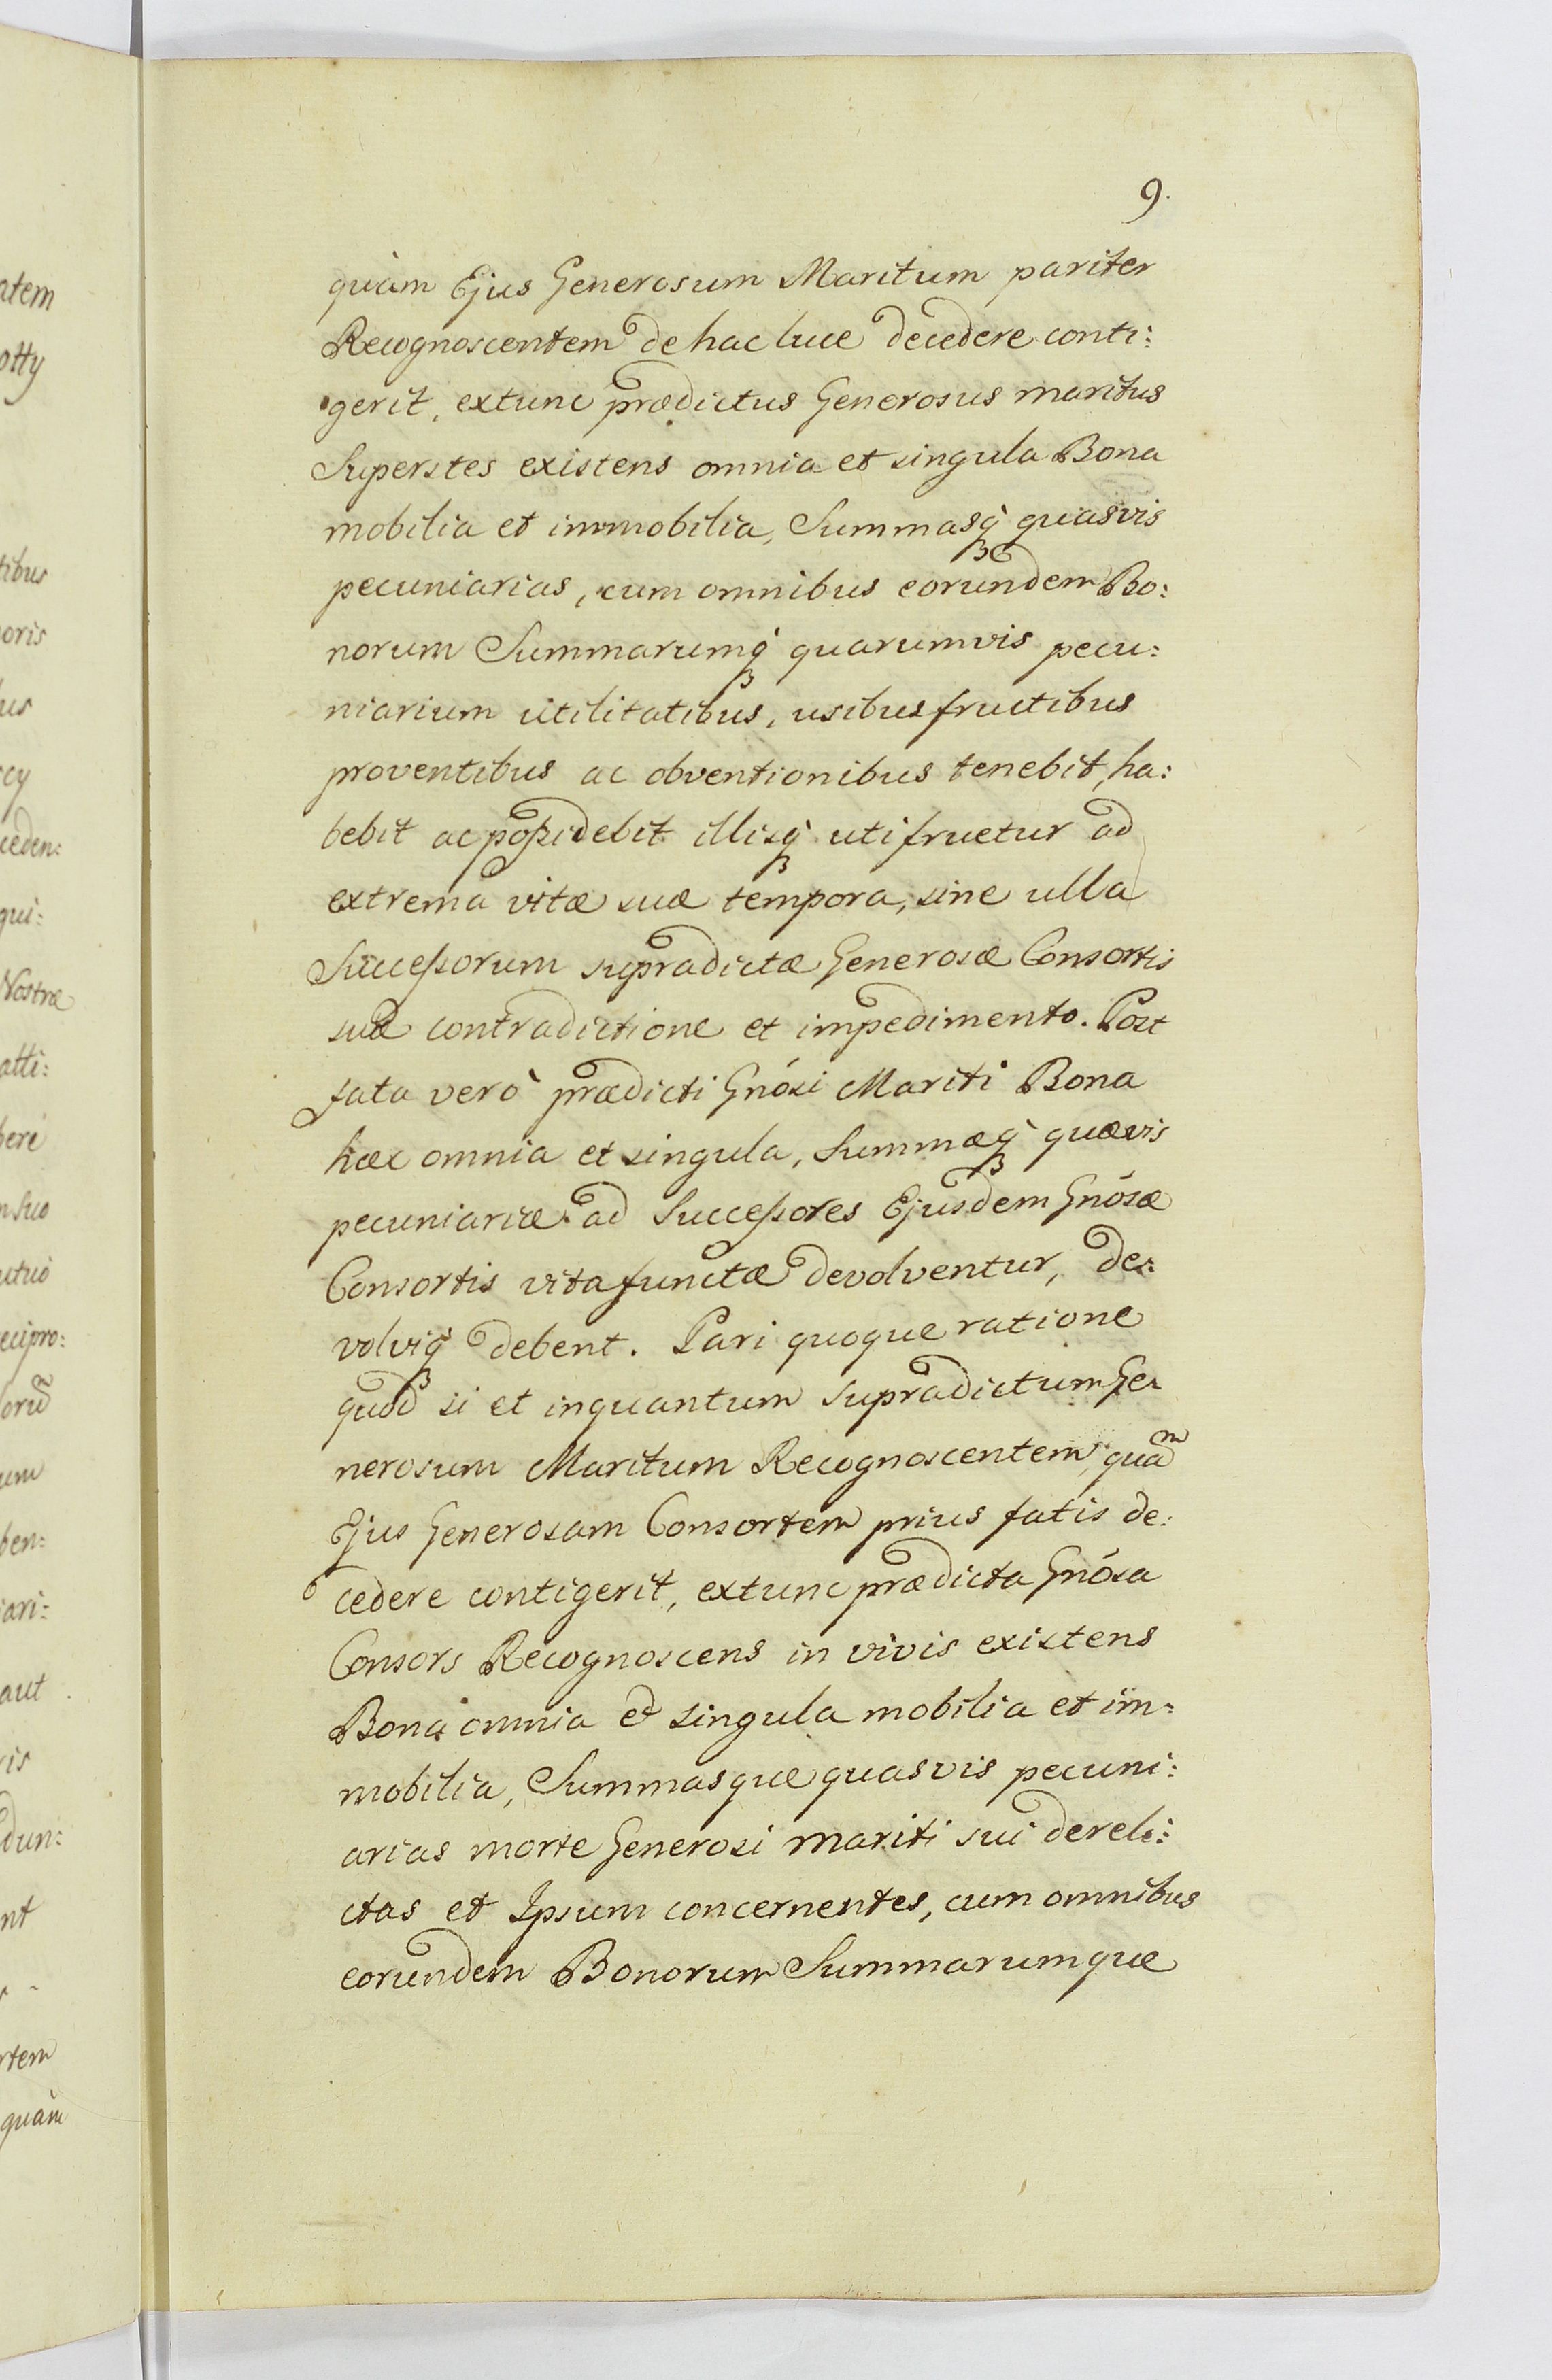 9.
quàm Ejus Generosum Maritum pariter
Recognoscentem de hac luce decedere conti:
gerit, extunc prædictus Generosus maritus
Superstes existens omnia et singula Bona
mobilia et immobilia, Summasq́ꝫ quasvis
pecuniarias, cum omnibus eorundem Bo:
norum Summarumq́ꝫ quarumvis pecu:
niarium utilitatibus, usibusfructibus
proventibus ac obventionibus tenebit, ha:
bebit ac poßidebit illisq́ꝫ utifruetur ad
extrema vitæ suæ tempora, sine ulla
Succeßorum supradictæ Generosæ Consortis
suæ contradictione et impedimento. Post
fata verò prædicti Gnósi Mariti Bona
hæc omnia et singula, Summæq́ꝫ quævis
pecuniariæ ad Succeßores Ejusdem Gnósæ
Consortis vitafunctæ devolventur, de:
volviq́ꝫ debent. Pari quoque ratione
quod si et inquantum supradictum Ge:
nerosum Maritum Recognoscentem, quàm
Ejus Generosam Consortem prius fatis de:
cedere contigerit, extunc prædicta Gnósa
Consors Recognoscens in vivis existens
Bona omnia et singula mobilia et im:
mobilia, Summasque quasvis pecuni:
arias morte Generosi mariti sui dereli:
ctas et Ipsum concernentes, cum omnibus
eorundem Bonorum Summarumque
atem
otty
tibus
oris
us
cy
ceden:
qui:
Nostræ
atti:
here
n suo
utuo
ecipro:
orum
um
ben:
ari:
aut
is
dun:
nt
rtem
quàm